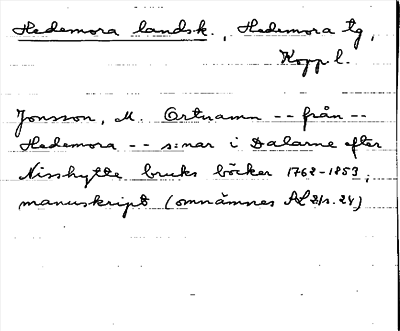 Hedemora landsk., Hedemora tg,
Kopp l.
Jonsson, M. Ortnamn -- från --
Hedemora -- s:nar i Dalarne efter
Nisshytte bruks böcker 1762-1853;
manuskript (omnämnes AL 2/1. 24)